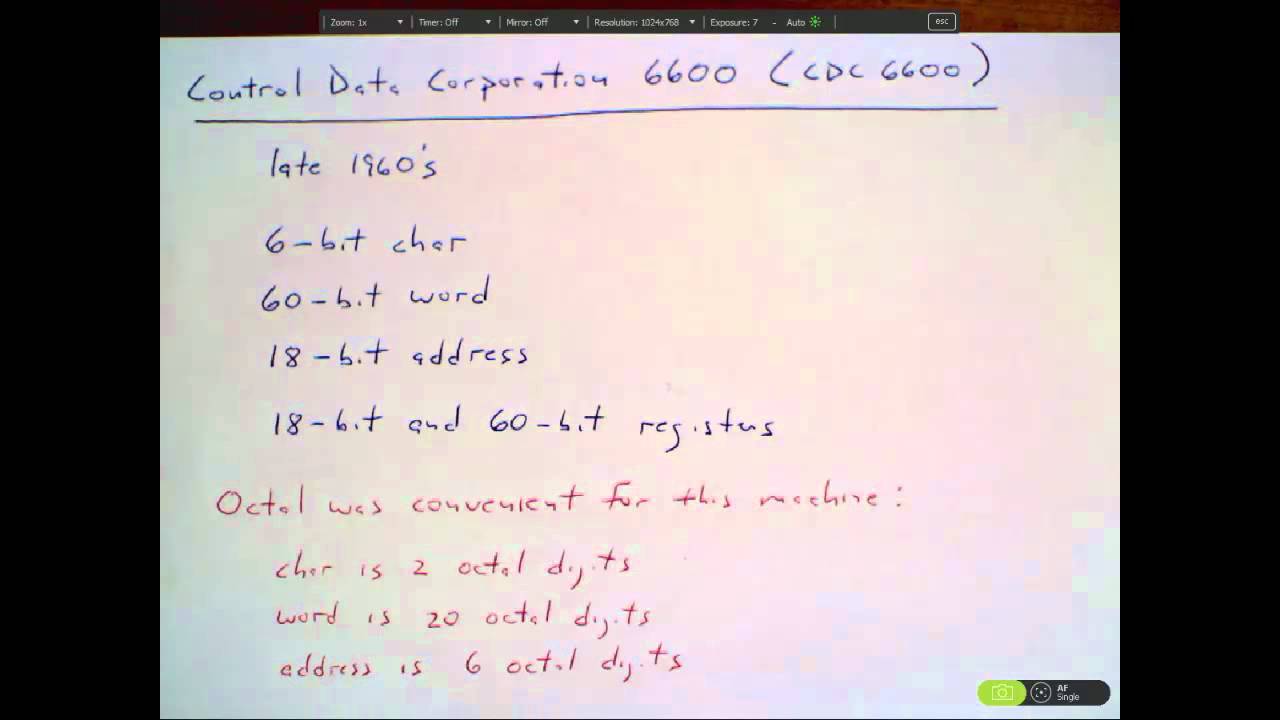 Zoom: 1x Timer: Off Mirror: Off Resolution: 1024x768 Exposure: 7 - Auto esc
Control Data Corporation 6600 (CDC 6600)
late 1960's
6-bit char
60-bit word
18-bit address
18-bit and 60-bit registers
Octal was convenient for this machine:
char is 2 octal digits
word is 20 octal digits
address is 6 octal digits
AF
Single